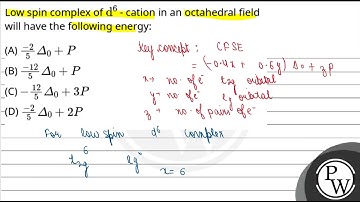 Low spin complex of d⁶ - cation in an octahedral field
will have the following energy:
(A) $\frac{-2}{5}$ Δ₀ + P
(B) $\frac{-12}{5}$ Δ₀ + P
(C) $-\frac{12}{5}$ Δ₀ + 3P
(D) $\frac{-2}{5}$ Δ₀ + 2P
Key concept : CFSE
= (-0.4x + 0.6y) Δ₀ + zP
x → no. of e⁻ t₂g orbital
y → no. of e⁻ eg orbital
z → no. of pairs of e⁻
For low spin d⁶ complex
t₂g⁶ eg⁰
x = 6
PW